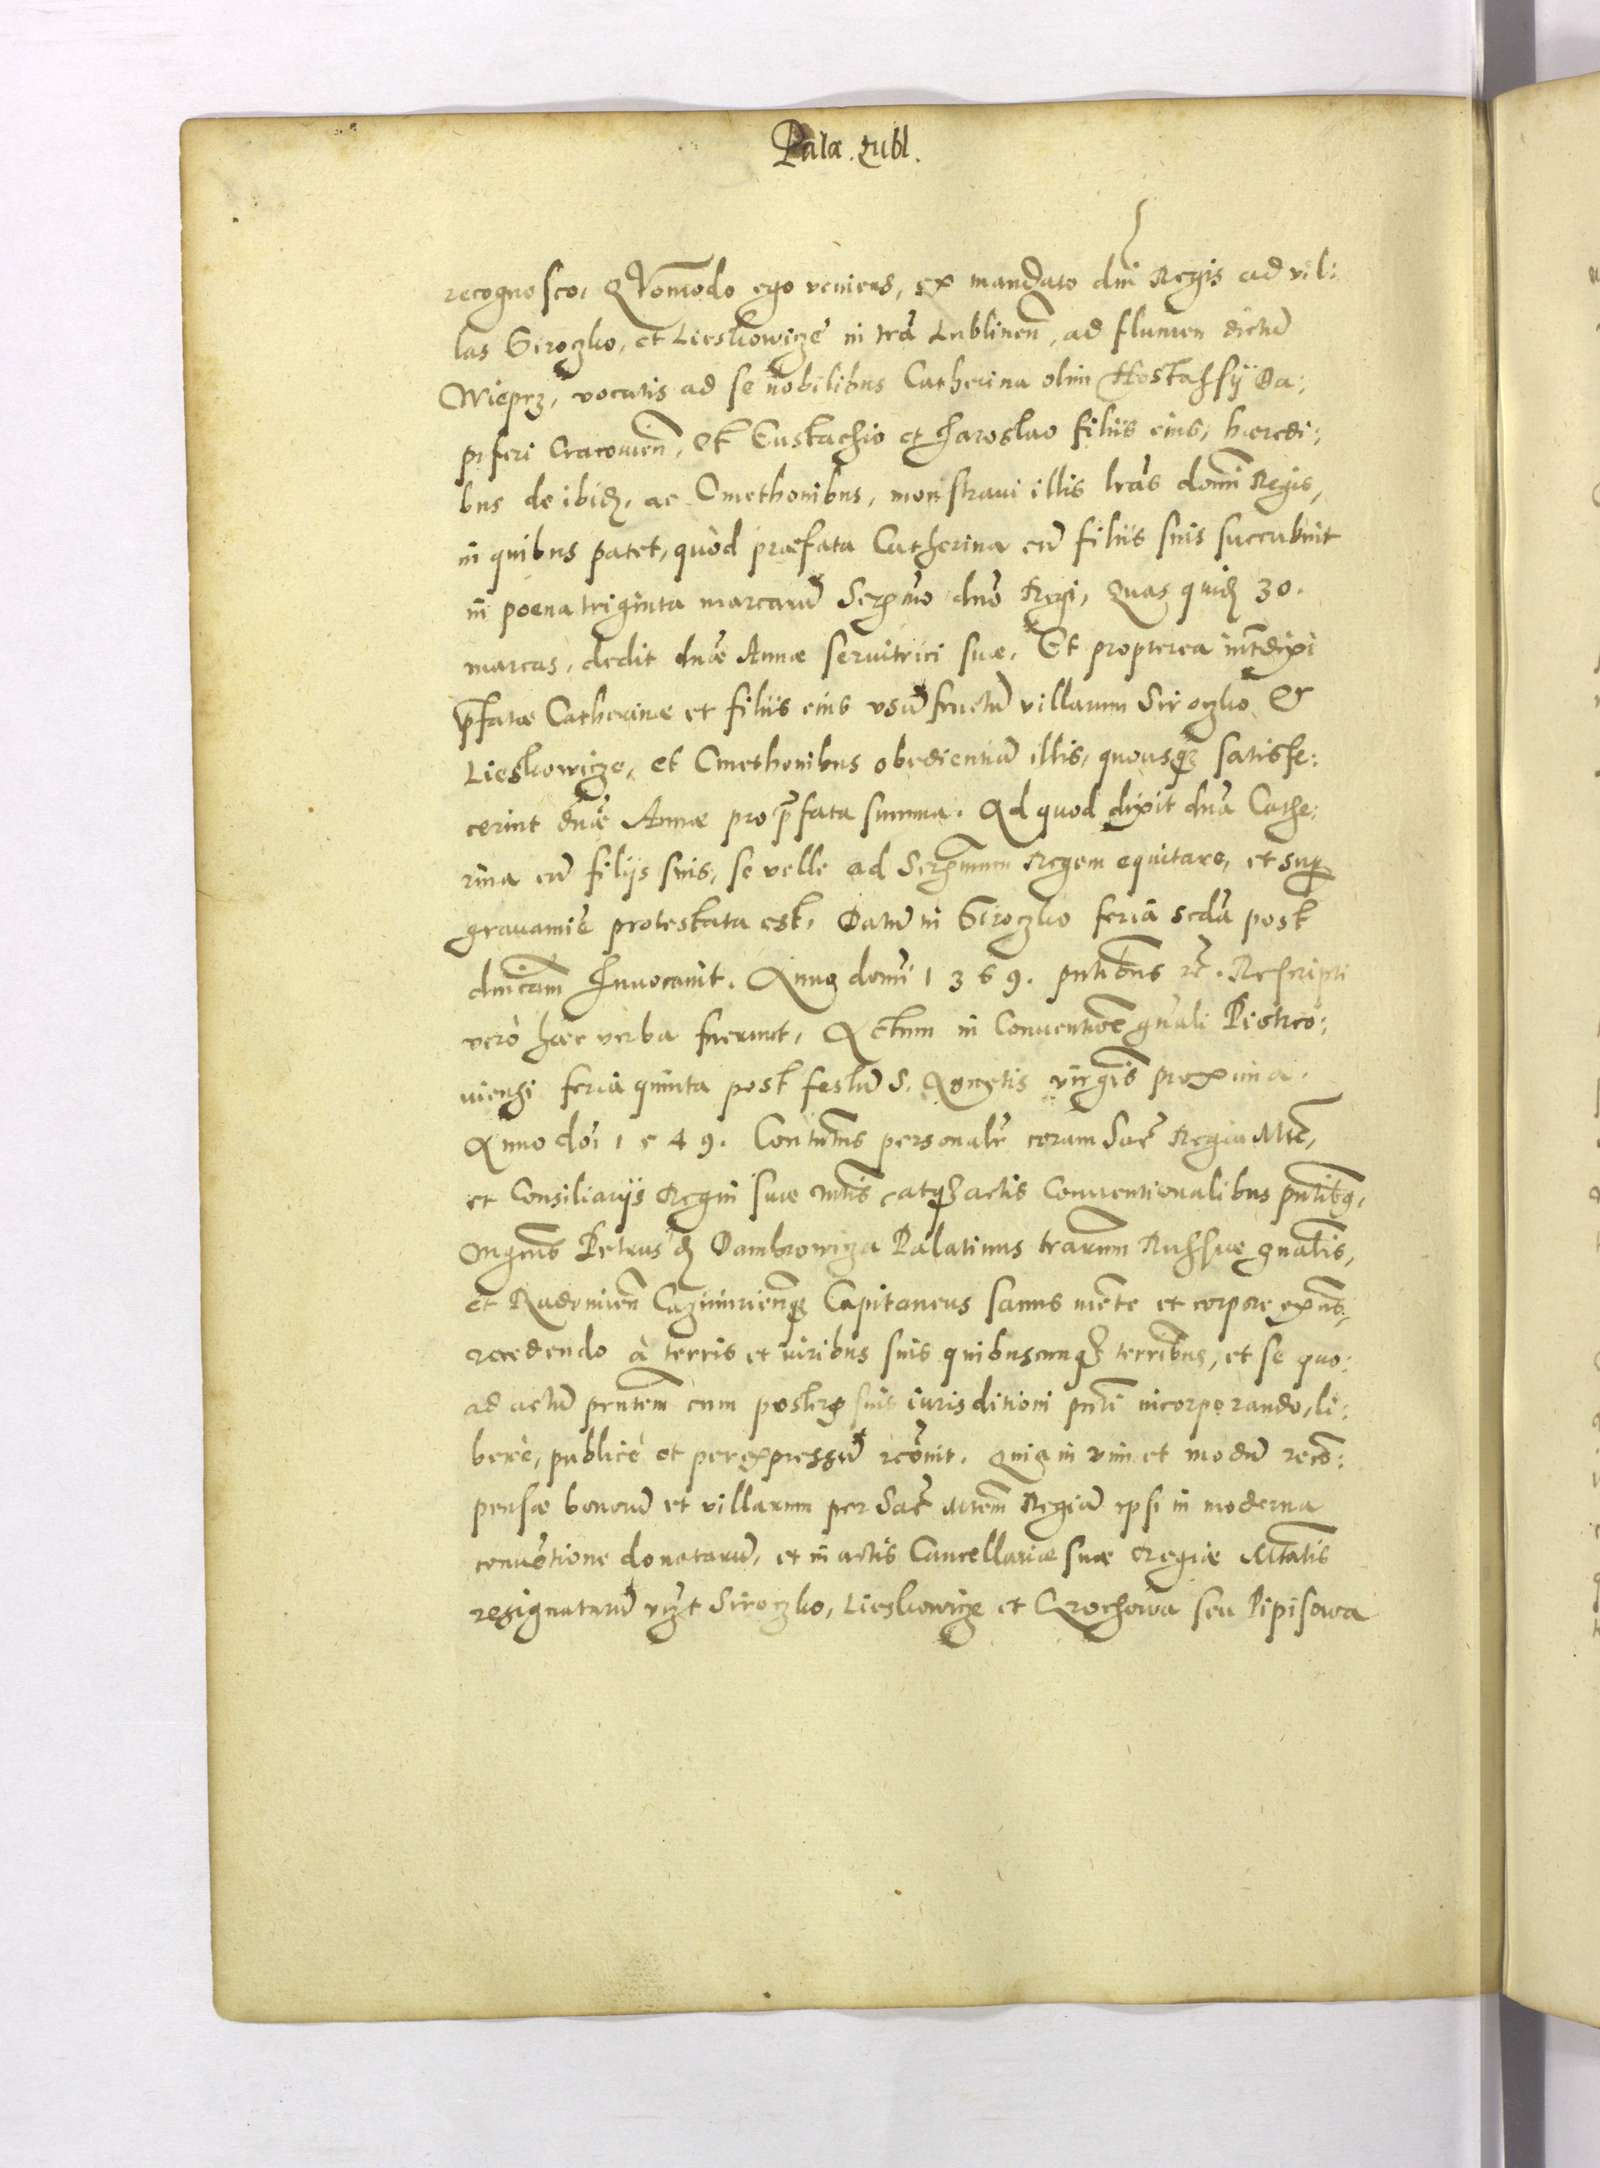 Pala. Lubl.
recognosco, Quomodo ego veniens, ex mandato dni Regis ad vil:
las Siroczko, et Lieskowicze in tra Lublinen, ad flumen dictu
Wieprz, vocatis ad se nobilibus Catherina olim Hostassij Da:
piferi Cracouien, et Eustachio et Jaroslao filiis eius, haeredi:
bus de ibid, ac Cmethonibus, monstraui illis lras domini Regis,
in quibus patet, quòd praefata Catherina cu filiis suis succubuit
in poena triginta marcaru Sermo dno Regi, quas quid 30.
marcas, dedit dnae Annae seruitrici suae, Et propterea interdixi
pfatae Catherinae et filiis eius vsufructu villarum Siroczko et
Lieskowicze, et Cmethonibus obedientia illis, quousq satisfe:
cerint dnae Annae pro pfata summa. Ad quod dixit dna Cathe:
rina cu filijs suis, se velle ad Sermum Regem equitare, et sup
grauamie protestata est, Datu in Siroczko feria scda post
dnicam Inuocauit. Anno domi 1369. pntibus etc. Rescripti
verò haec verba fuerunt, Actum in Conuentione gnali Piotrco:
uiensi feria quinta post festu S. Agnetis virginis proxima.
Anno doi 1549. Constitutus personalr coram Sac Regia Mte,
et Consiliarijs Regni suae Mtis, atq actis Conuentionalibus pntibq,
Mgcus Petrus d Dambrowicza Palatinus trarum Russiae gnalis,
et Radomien Cazimirienq Capitaneus sanus mente et corpore exns,
recedendo à terris et iuribus suis quibuscunq terribus, et se quo:
ad actu pntem cum posteris suis iurisditioni pnti incorporando, li:
berè, publicè et per expressu rcouit. Quia in vim et modu reco:
pensae bonoru et villarum per Sac Mtem Regia ipsi in moderna
conuetione donataru, et in actis Cancellariae suae Regiae Mtatis
resignataru vizt Siroczko, Lieskowicze et Crochowa seu Pipisowa